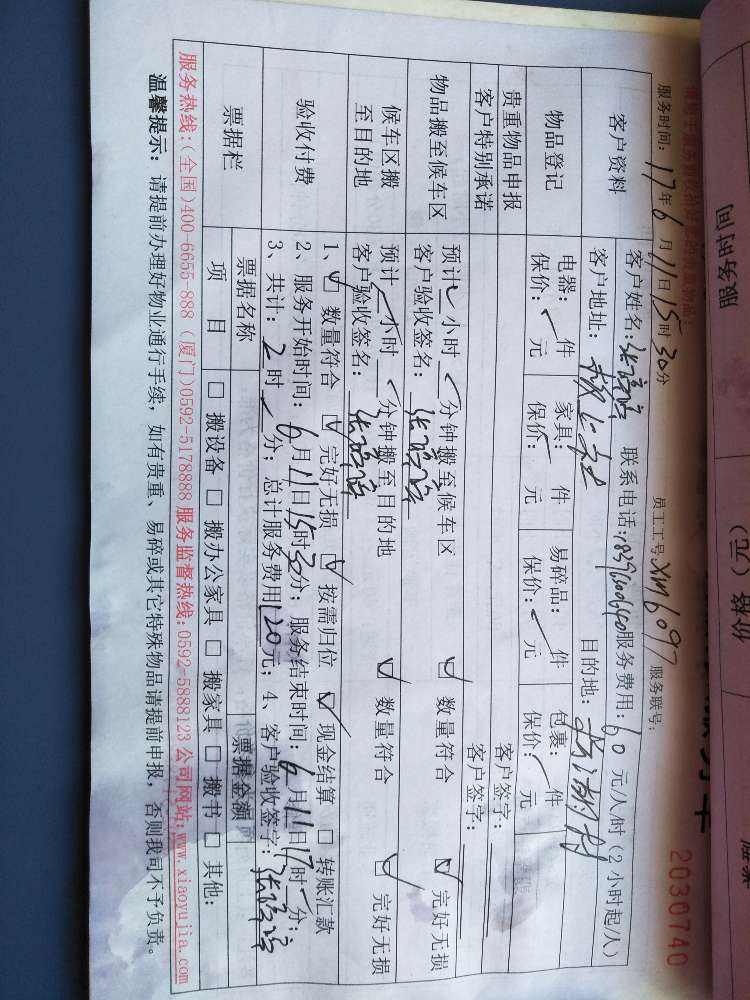 服务时间
价格（元）
2030740
服务时间：17年6月11日15时30分 员工工号：XM6097 服务联号：
客户资料
客户姓名： 联系电话： 服务费用：60元/人/时（2小时起/人）
客户地址： 目的地：
物品登记
电器： 件 家具： 件 易碎品： 件 包裹： 件
保价： 元 保价： 元 保价： 元 保价： 元
贵重物品申报 客户签字：
客户特别承诺 客户签字：
物品搬至候车区
预计 小时 分钟搬至候车区 ☑ 数量符合 ☑ 完好无损
客户验收签名：
候车区搬至目的地
预计 小时 分钟搬至目的地 ☑ 数量符合 ☑ 完好无损
客户验收签名：
验收付费
1、☑ 数量符合 ☑ 完好无损 ☑ 按需归位 ☑ 现金结算 □ 转账汇款
2、服务开始时间：6月11日15时30分；服务结束时间：6月11日17时 分；
3、共计：2时 分；总计服务费用120元；4、客户验收签字：
票据栏
票据名称 票据金额
项 目 □ 搬设备 □ 搬办公家具 □ 搬家具 □ 搬书 □ 其他:
服务热线:(全国)400-6655-888 (厦门)0592-5178888 服务监督热线:0592-5888123 公司网站:www.xiaoyujia.com
温馨提示：请提前办理好物业通行手续，如有贵重、易碎或其它特殊物品请提前申报，否则我司不予负责。